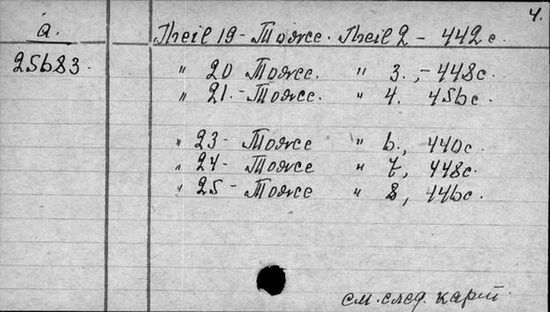 4.
a. Theil 19 - Тоже. Theil 2 - 442 с.
25683. " 20 Тоже. " 3., - 448 с.
" 21. - Тоже. " 4. 456 с.
" 23 - Тоже " 6., 440 с.
" 24 - Тоже " 7, 448 с.
" 25 - Тоже " 8, 446 с.
см. след. карт.